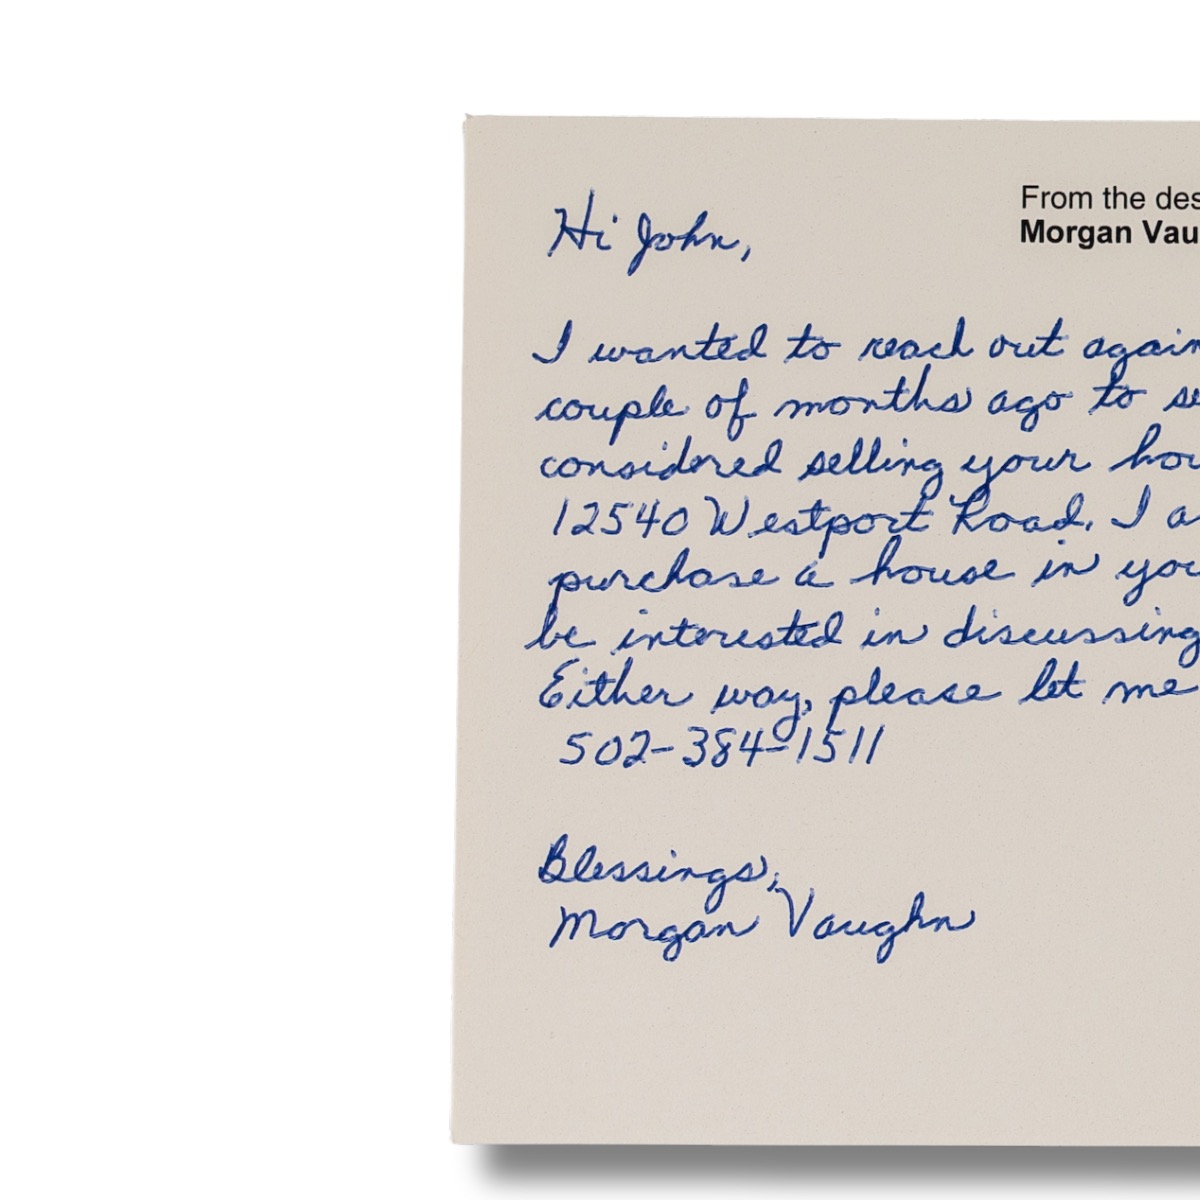 From the des
Morgan Vau
Hi John,
I wanted to reach out again
couple of months ago to se
considered selling your hou
12540 Westport Road. I a
purchase a house in you
be interested in discussing
Either way, please let me
502-384-1511
Blessings,
Morgan Vaughn